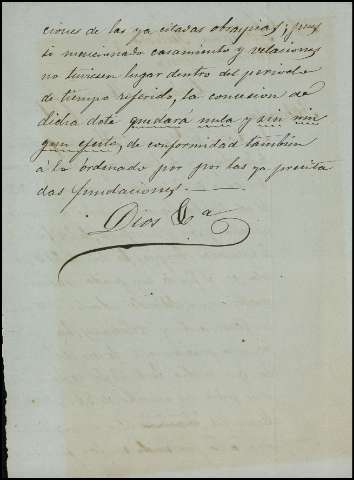 ciones de las ya citadas obrapias; pues
si mencionado casamiento y velaciones
no tuviesen lugar dentro del periodo
de tiempo referido, la concesion de
dicha dote quedará nula y sin nin
gun efecto, de conformidad tambien
á lo ordenado por por las ya precita
das fundaciones.
Dios &a